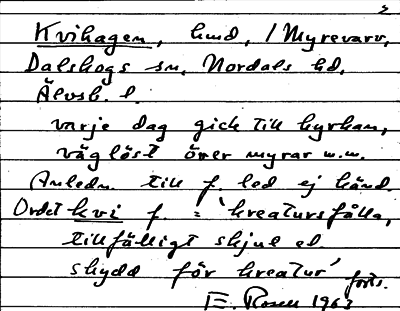 2
Kvihagen, hmd, i Myrevarv,
Dalskogs sn, Nordals hd,
Älvsb. l.
varje dag gick till kyrkan,
väglöst över myrar m.m.
Anledn. till f. led ej känd.
Ordet kvi f. = 'kreatursfålla,
tillfälligt skjul el.
skydd för kreatur'
forts.
E. Rosell 1963